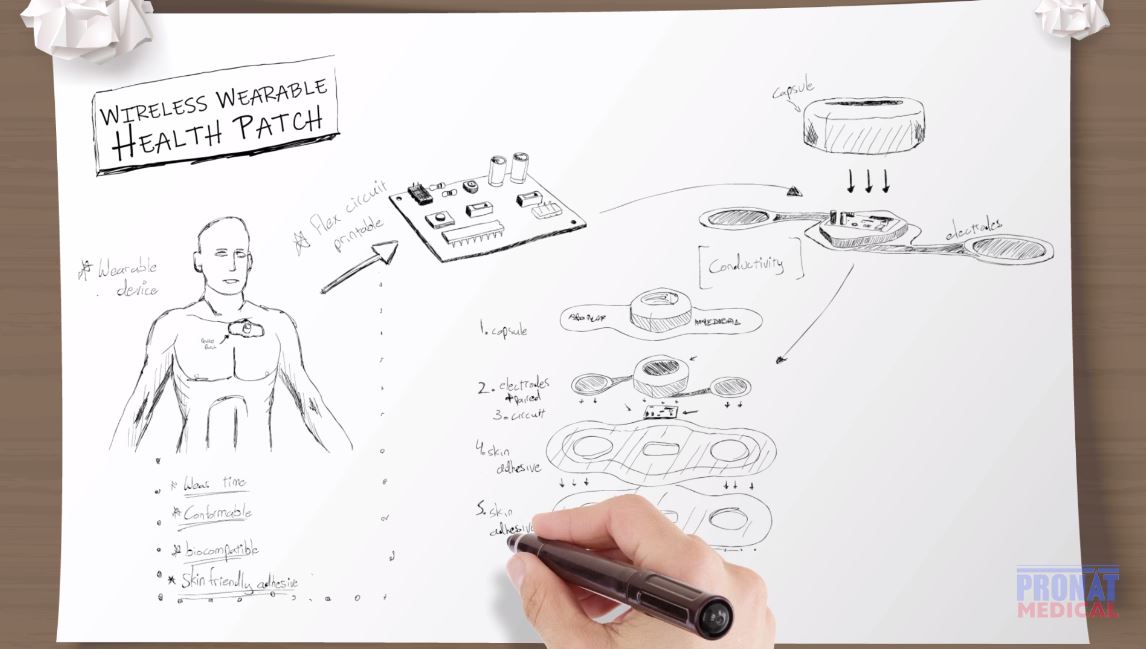 WIRELESS WEARABLE
HEALTH PATCH
Wearable
device
Flex circuit
printable
capsule
electrodes
Conductivity
1. capsule
2. electrodes
+paired
3. circuit
4. skin
adhesive
5. skin
adhesive
time
Conformable
biocompatible
Skin friendly adhesive
PRONAT
MEDICAL